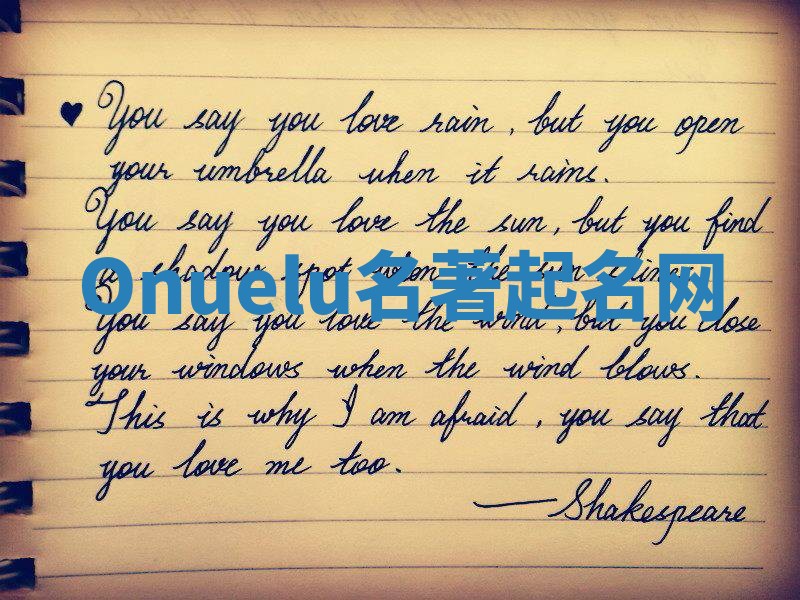 ♥ You say you love rain, but you open
your umbrella when it rains.
You say you love the sun, but you find
a shadow spot when the sun shines.
Onuelu名著起名网
You say you love the wind, but you close
your windows when the wind blows.
This is why I am afraid, you say that
you love me too.
— Shakespeare